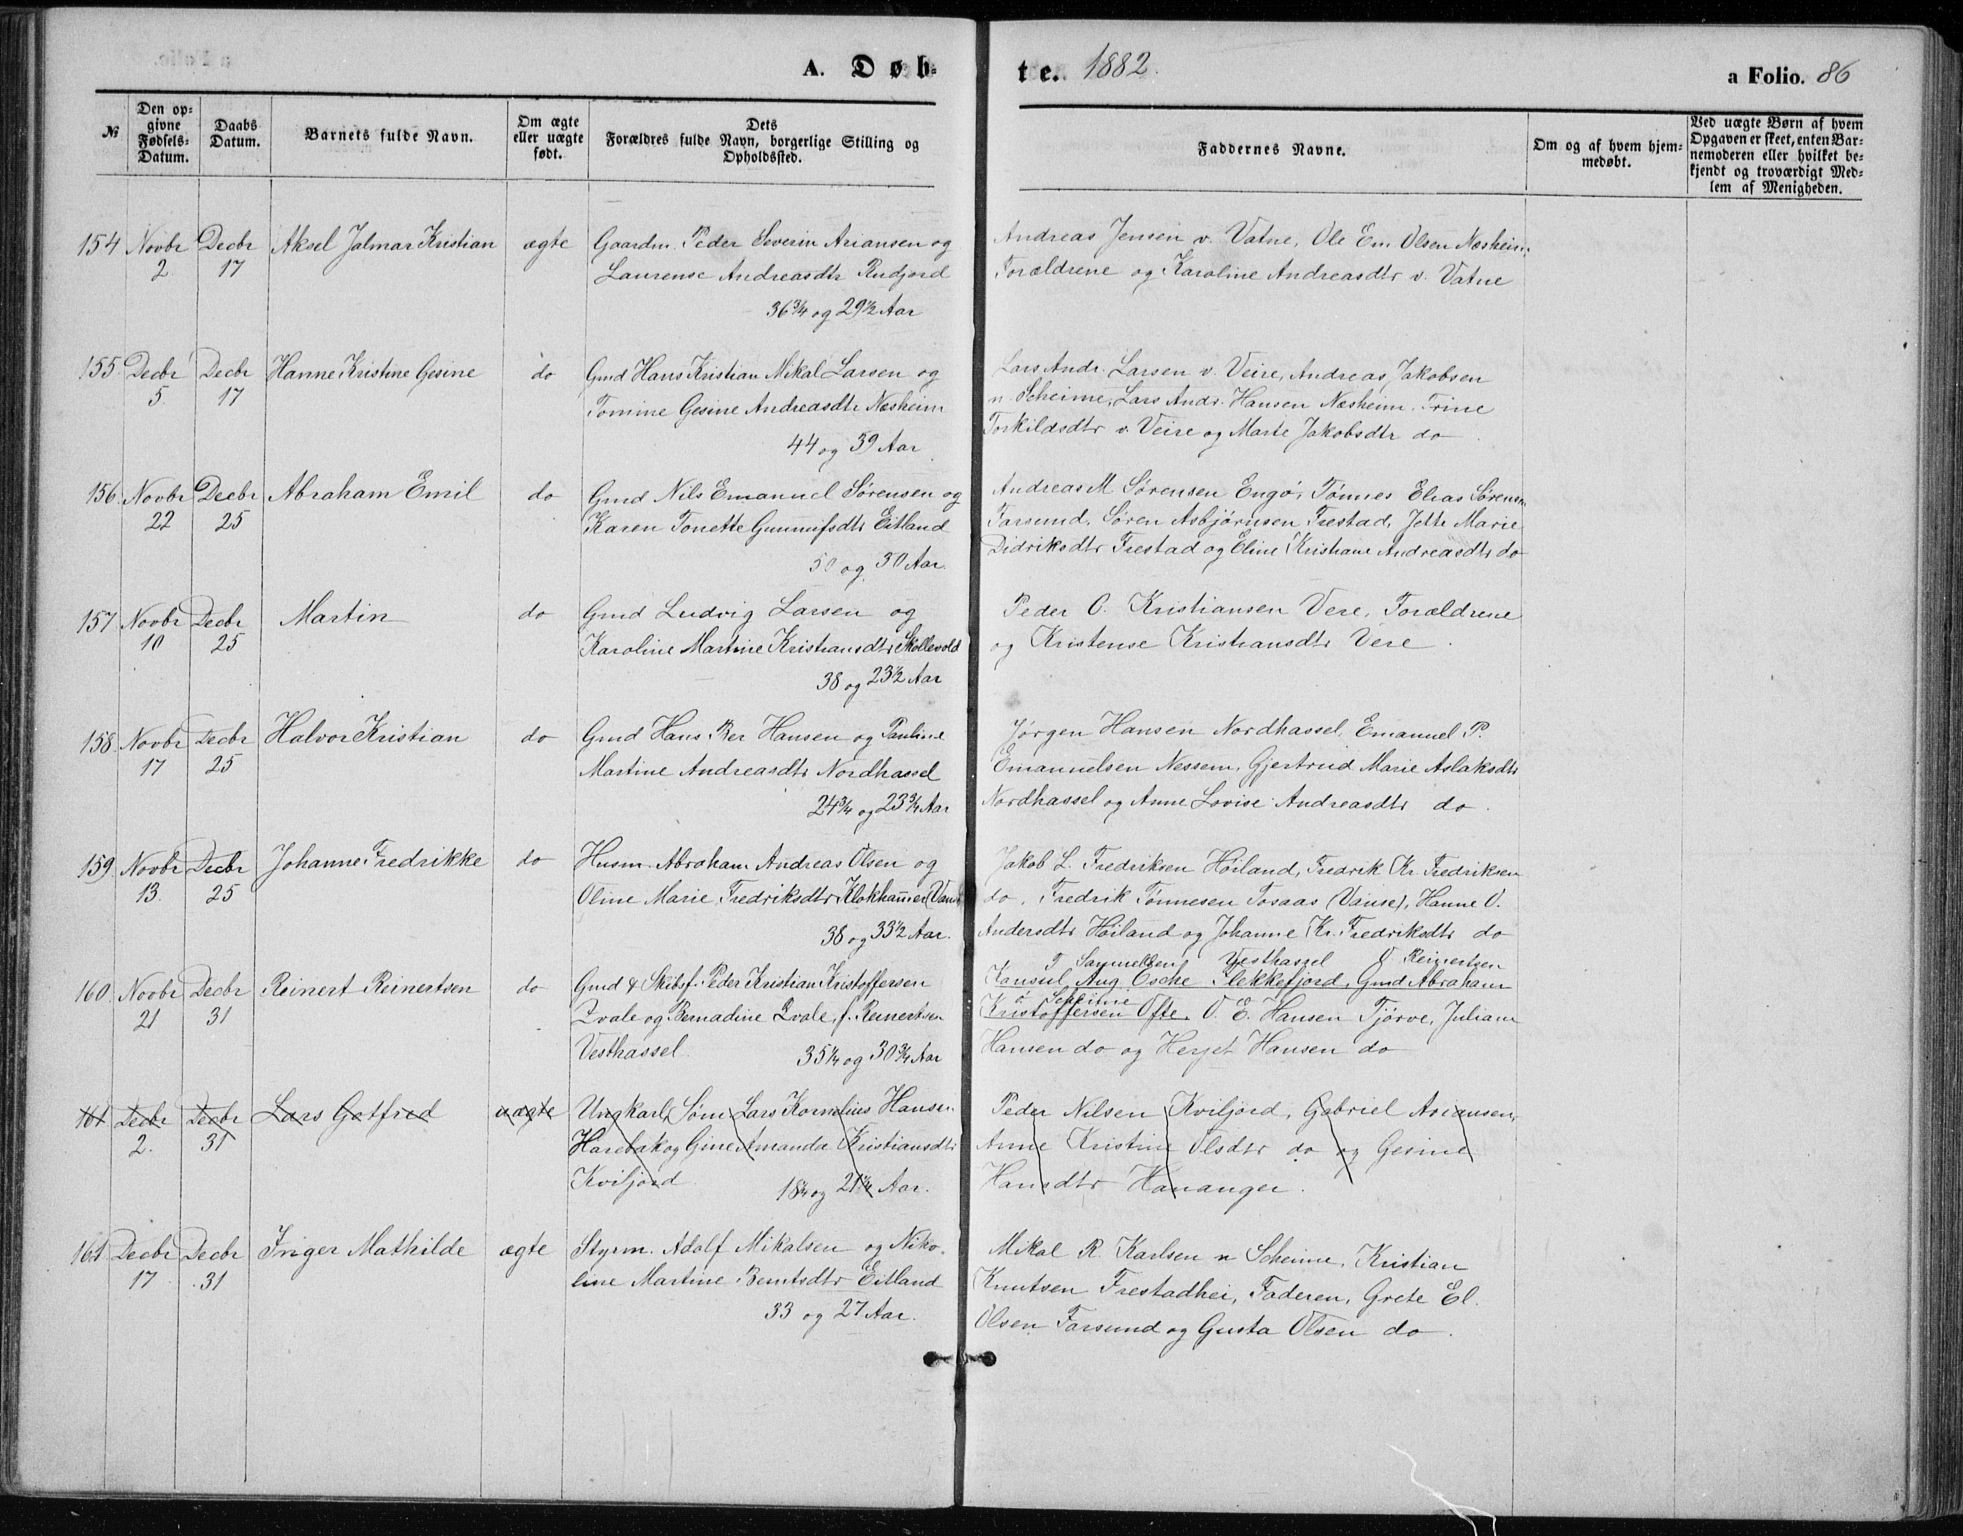 A. Døb-
te. 1882.
a Folio. 86
№
Den op-
givne
Fødsels-
Datum.
Daabs
Datum.
Barnets fulde Navn.
Om ægte
eller uægte
født.
Dets
Forældres fulde Navn, borgerlige Stilling og
Opholdssted.
Faddernes Navne.
Om og af hvem hjem-
medøbt.
Ved uægte Børn af hvem
Opgaven er skeet, enten Bar-
nemoderen eller hvilket be-
kjendt og troværdigt Med-
lem af Menigheden.
154 Novbr Decbr Aksel Jalmar Kristian ægte Gaardm. Peder Severin Ariansen og
2 17 Laurense Andreasdtr Rudjord
36 3/4 og 29 1/2 Aar
Andreas Jensen v. Vatne, Ole Em. Olsen Næsheim,
Forældrene og Karoline Andreasdtr v. Vatne
155 Decbr Decbr Hanne Kristine Gesine do Gmd Hans Kristian Mikal Larsen og
5. 17 Tomine Gesine Andreasdtr Næsheim
44 og 39 Aar
Lars Andr. Larsen v. Veire, Andreas Jakobsen
n. Scheime, Lars Andr. Hansen Næsheim. Trine
Torkildsdtr v. Veire og Marte Jakobsdtr do
156 Novbr Decbr Abraham Emil do Gmd Nils Emanuel Sørensen og
22 25 Karen Tonette Gunnufsdtr Eitland
50 og 30 Aar.
Andreas M Sørensen Engø, Tønnes Elias Sørensen
Farsund, Søren Asbjørnsen Frestad, Jette Marie
Didriksdtr Frestad og Eline Kristiane Andreasdtr do
157 Novbr Decbr Martin do Gmd Ludvig Larsen og
10 25 Karoline Martine Kristiansdtr Skollevold
38 og 23 1/2 Aar
Peder O. Kristiansen Vere, Forældrene
og Kristense Kristiansdtr Vere.
158 Novbr Decbr Halvor Kristian do Gmd Hans Ber Hansen og Pauline
17 25 Martine Andreasdtr Nordhassel
24 3/4 og 23 3/4 Aar
Jørgen Hansen Nordhassel, Emanuel P.
Emanuelsen Nessem, Gjertrud Marie Aslaksdtr
Nordhassel og Anne Lovise Andreasdtr do.
159 Novbr Decbr Johanne Fredrikke do Husm. Abraham Andreas Olsen og
13. 25 Oline Marie Fredriksdtr Klokhammer (Vanse
38 og 33 1/2 Aar.
Jakob L. Fredriksen Høiland, Fredrik Kr. Fredriksen
do, Fredrik Tønnesen Tosaas (Vanse), Hanne O.
Andersdtr Høiland og Johanne Kr. Fredriksdtr do
160 Novbr Decbr Reinert Reinertsen do Gmd & Skibsf. Peder Kristian Kristoffersen
21 31 Qvale og Bernadine Qvale, f. Reinertsen
Vesthassel. 35 1/4 og 30 3/4 Aar
T Samuelsen Vesthassel O Reinertsen
Konsul Aug. Esche Flekkefjord, Gmd Abraham
Scheime
Kristoffersen Ofte. O. E. Hansen Tjørve, Juliane
Hansen do og Herjet Hansen do
161 Decbr Decbr Lars Gotfred uægte Ungkarl, Søm. Lars Kornelius Hansen
2. 31 Harebak og Gine Amanda Kristiansdtr
Kviljord 18 1/4 og 21 1/4 Aar.
Peder Nilsen Kviljord, Gabriel Ariansen,
Anne Kristine Olsdtr do og Gesine
Hansdtr Hananger.
161 Decbr Decbr Inger Mathilde ægte Styrm. Adolf Mikalsen og Niko-
17 31 line Martine Berntsdtr Eitland
33 og 27 Aar.
Mikal R. Karlsen n Scheime, Kristian
Knutsen Frestadhei, Faderen, Grete El.
Olsen Farsund og Gusta Olsen do.